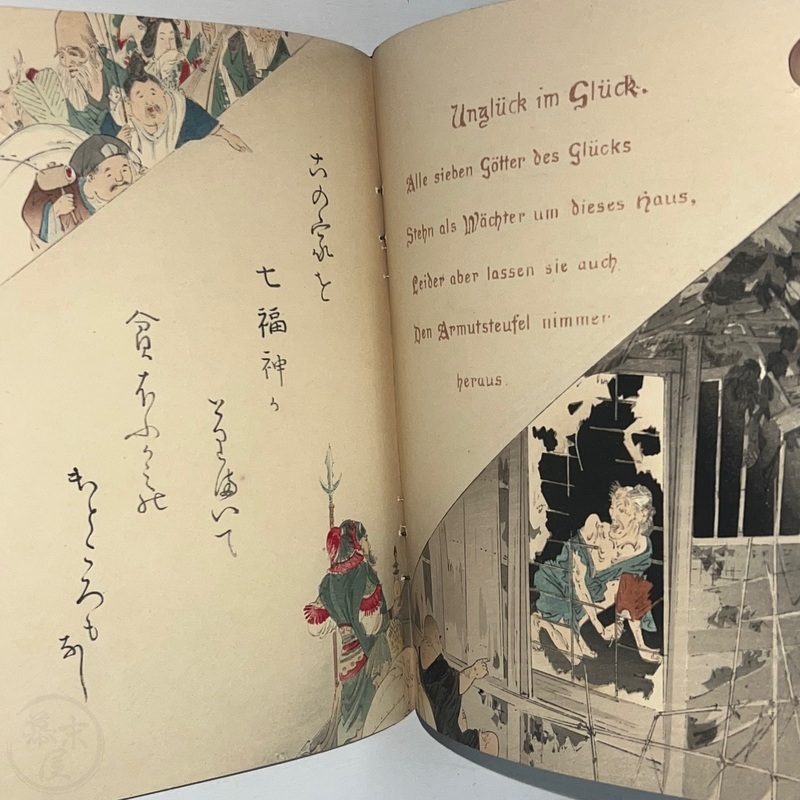 この家を
七福神か
とりまいて
貧ほふかミの
ところもなし
Unglück im Glück.
Alle sieben Götter des Glücks
Stehn als Wächter um dieses Haus,
Leider aber lassen sie auch
Den Armutsteufel nimmer
heraus.
幕末屋